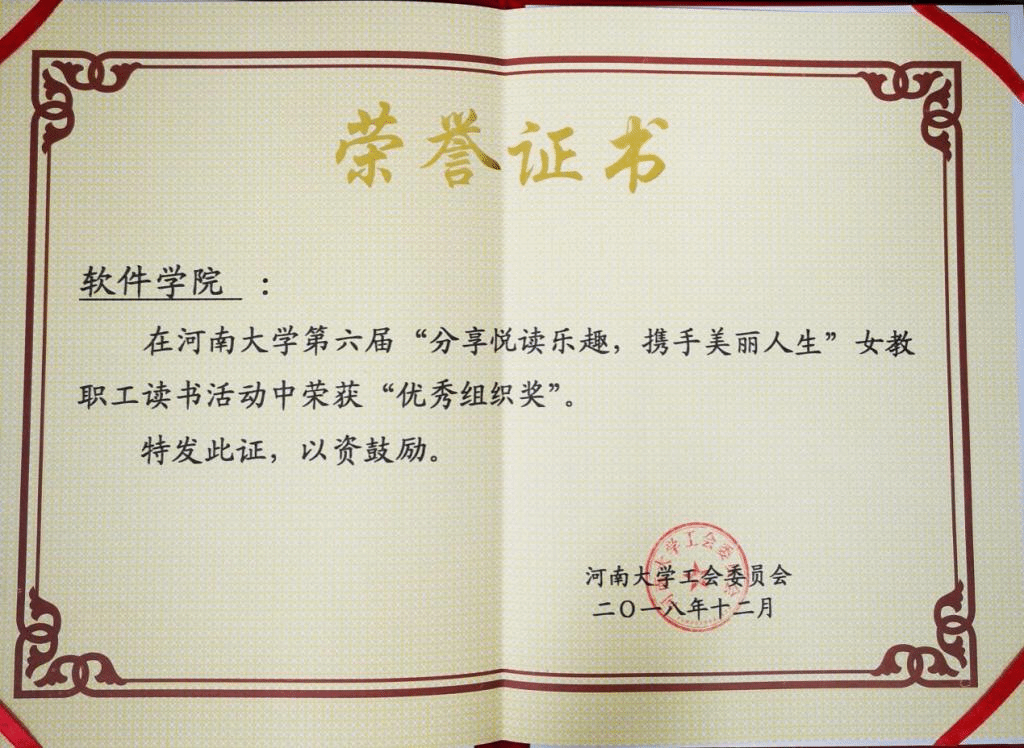 荣誉证书
软件学院 ：
在河南大学第六届“分享悦读乐趣，携手美丽人生”女教
职工读书活动中荣获“优秀组织奖”。
特发此证，以资鼓励。
河南大学工会委员会
河南大学工会委员会
二〇一八年十二月